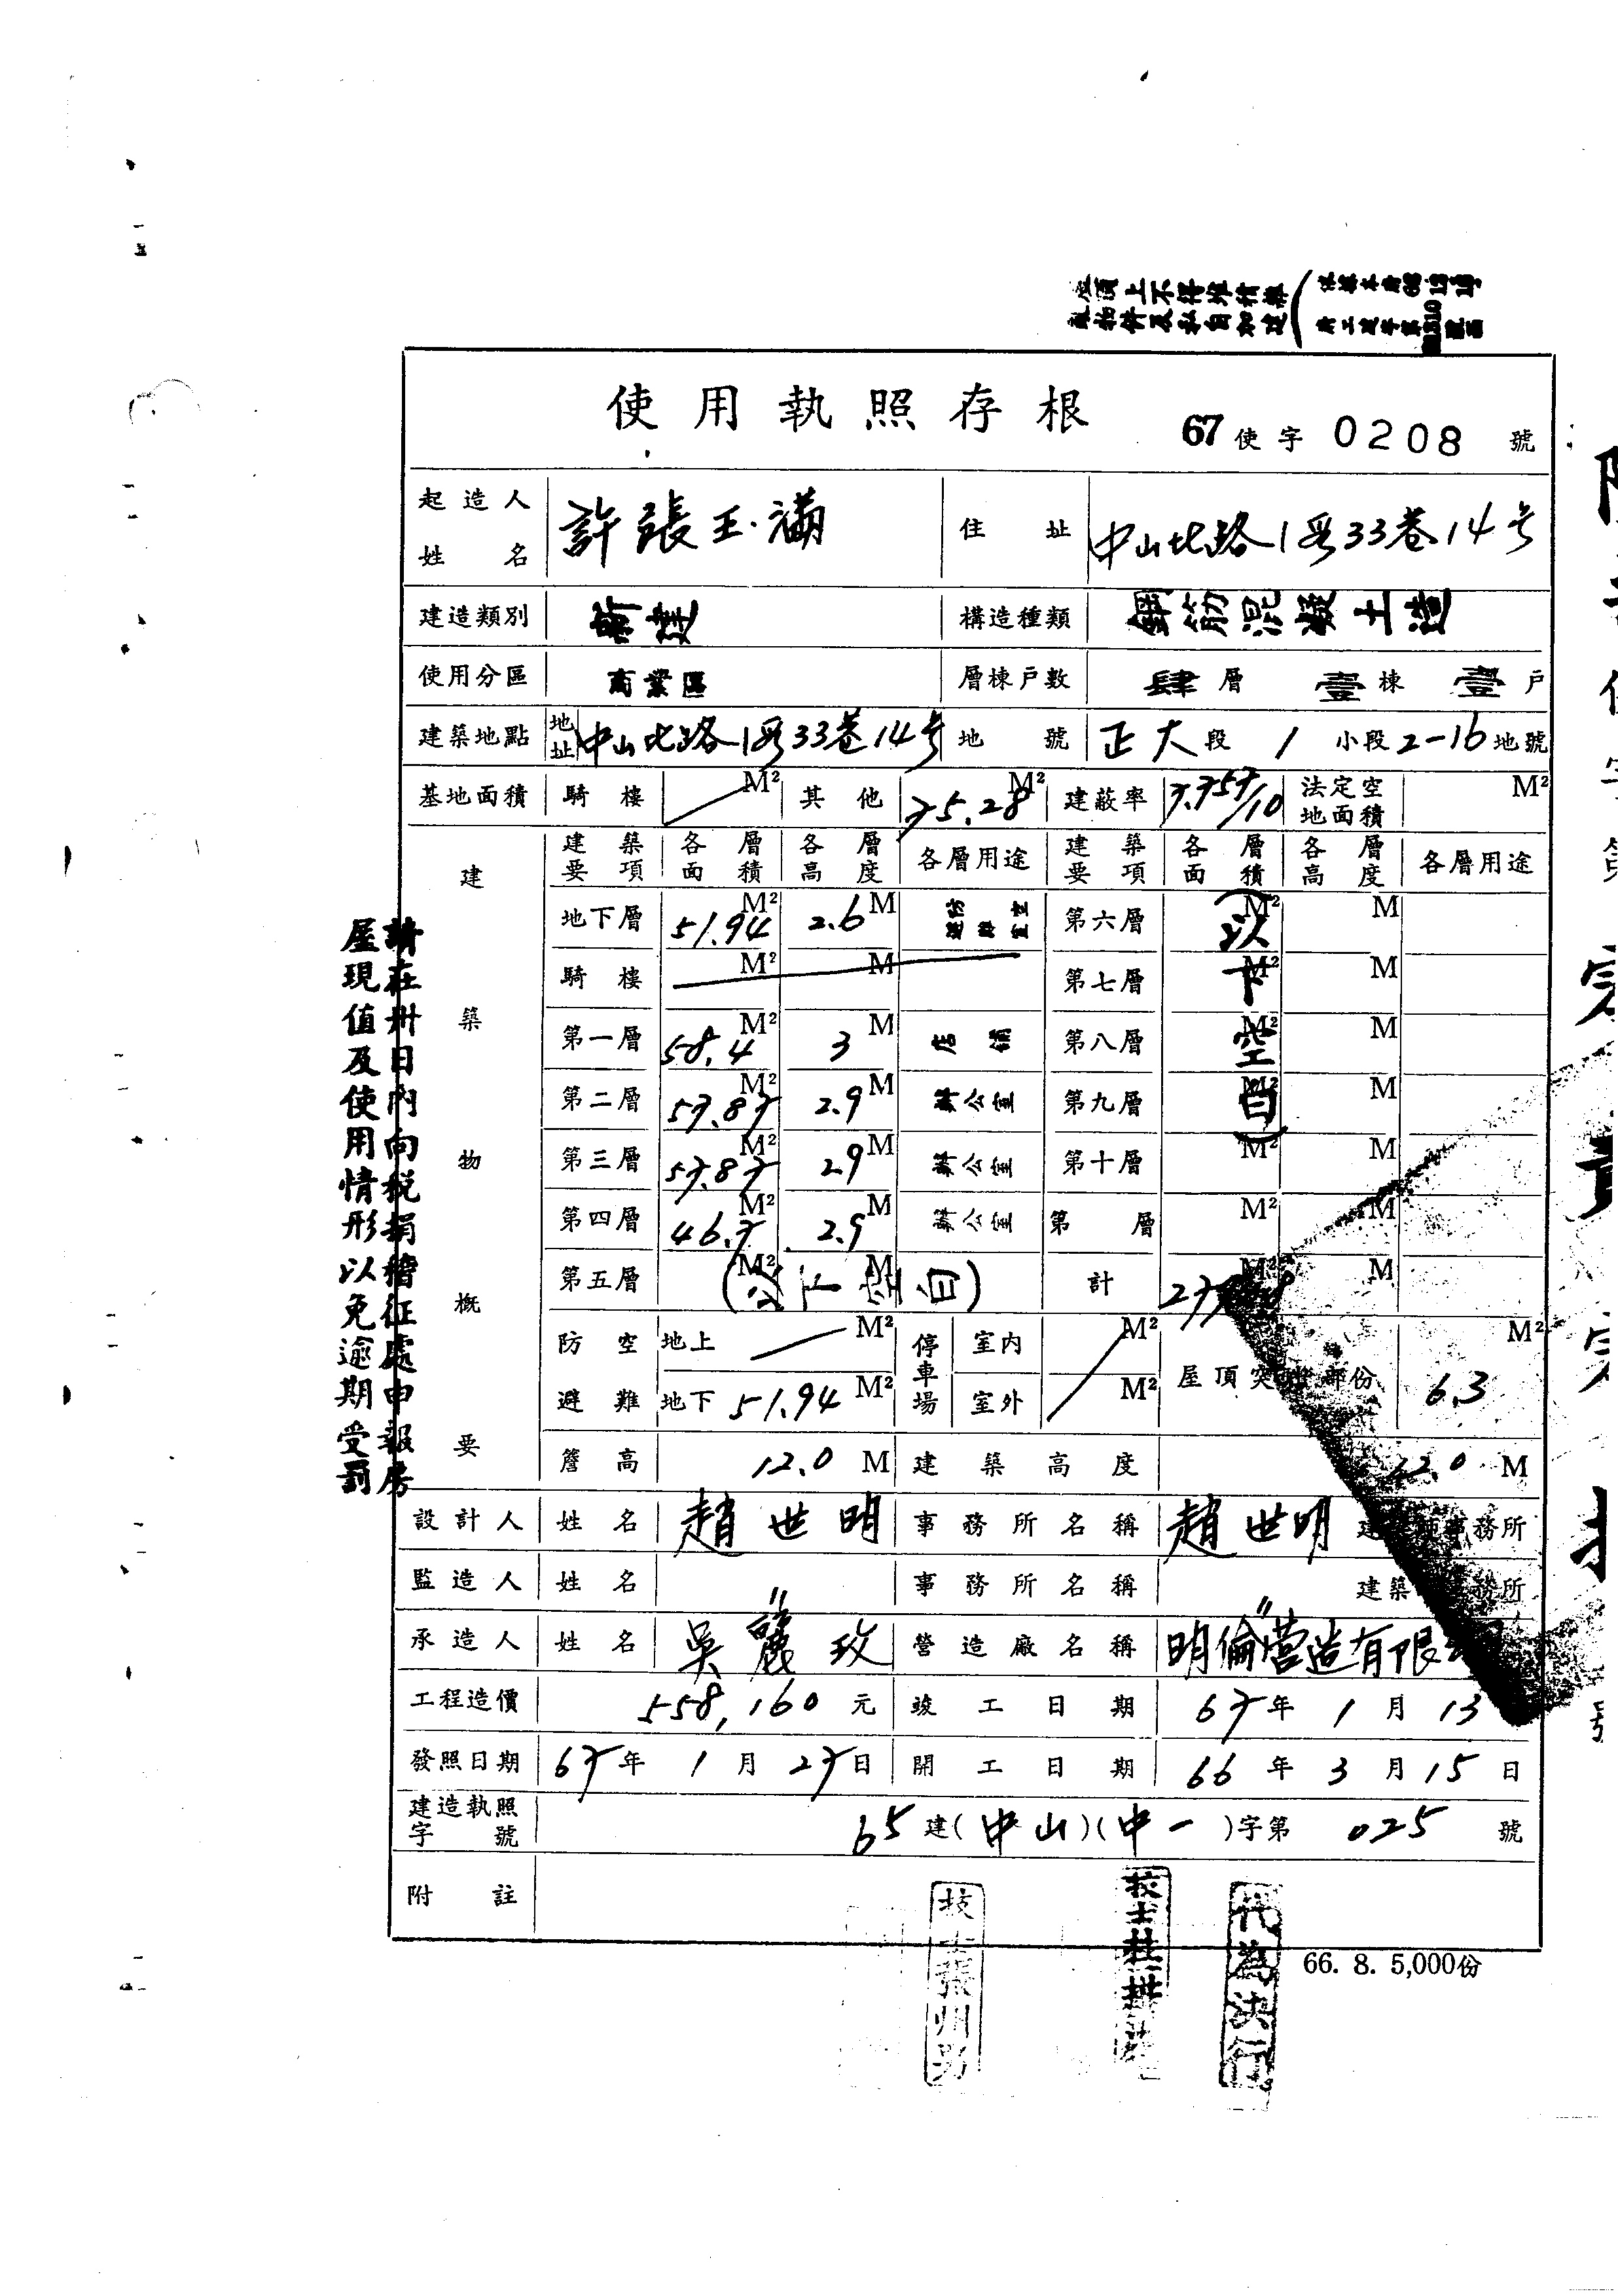 使用執照存根
67使字0208號
起造人姓名 許張玉滿 住址 中山北路1段33巷14号
建造類別 新建 構造種類 鋼筋混凝土造
使用分區 商業區 層棟戶數 肆層 壹棟 壹戶
建築地點 地址 中山北路1段33巷14号 地號 正大段 1 小段 2-16 地號
基地面積 騎樓 M² 其他 75.28 M² 建蔽率 7.757/10 法定空地面積 M²
建築物概要
建築要項 各層面積 各層高度 各層用途 建築要項 各層面積 各層高度 各層用途
地下層 51.94 M² 2.6 M 防空避難室 第六層 (以 M² M
騎樓 M² M 第七層 下 M² M
第一層 58.4 M² 3 M 店舖 第八層 空 M² M
第二層 57.87 M² 2.9 M 辦公室 第九層 白) M² M
第三層 57.87 M² 2.9 M 辦公室 第十層 M² M
第四層 46.7 M² 2.9 M 辦公室 第 層 M² M
第五層 M² M (以下空白) 計 M² M
防空避難 地上 M² 停車場 室內 M² 屋頂突 部份 6.3 M²
地下 51.94 M² 室外 M²
簷高 12.0 M 建築高度 12.0 M
設計人 姓名 趙世明 事務所名稱 趙世明 建 事務所
監造人 姓名 事務所名稱 建築 務所
承造人 姓名 吳麗玫 營造廠名稱 明倫營造有限
工程造價 558,160 元 竣工日期 67年 1月 13
發照日期 67年 1月 27日 開工日期 66年 3月 15日
建造執照字號 65建(中山)(中一)字第 025 號
附註
66. 8. 5,000份
請在卅日內向稅捐稽征處申報房
屋現值及使用情形以免逾期受罰
代為決行